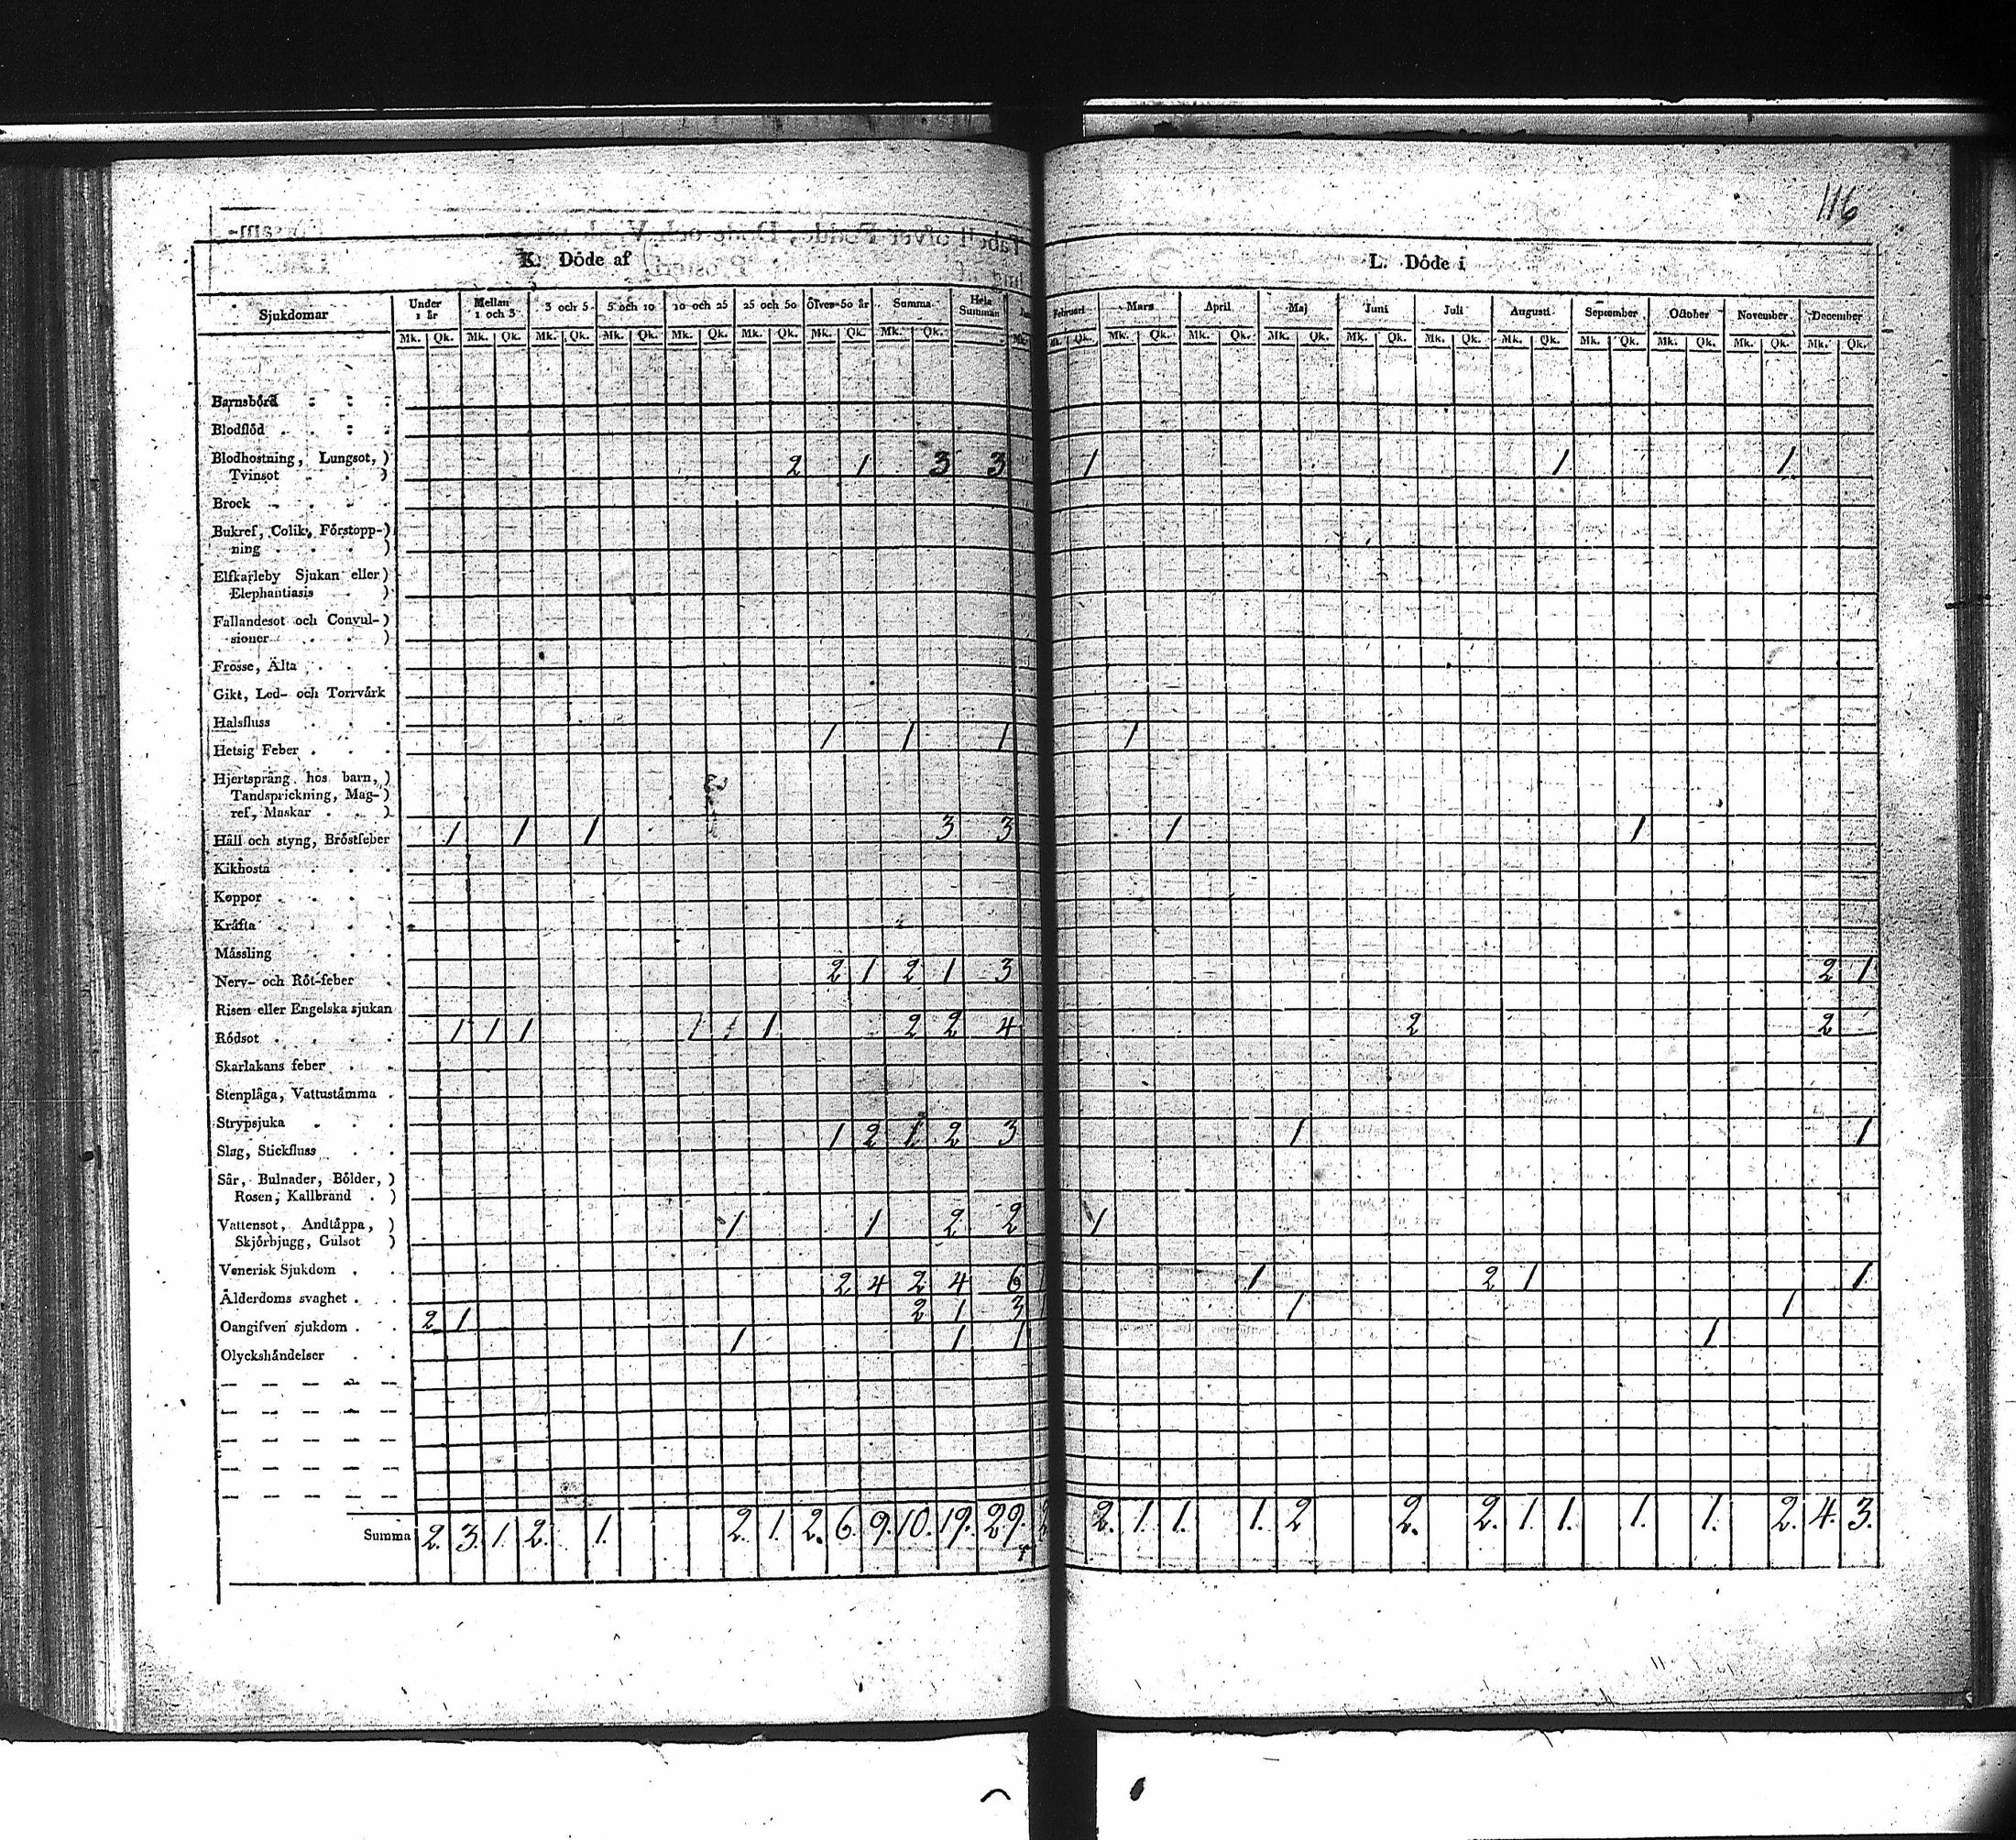 116
K. Döde af
L. Döde i
Sjukdomar
Under 1 år
Mellan 1 och 3
3 och 5
5 och 10
10 och 25
25 och 50
Öfver 50 år
Summa
Hela Summan
Februari
Mars
April
Maj
Juni
Juli
Augusti
September
October
November
December
Mk. Qk. Mk. Qk. Mk. Qk. Mk. Qk. Mk. Qk. Mk. Qk. Mk. Qk. Mk. Qk.
Mk. Qk. Mk. Qk. Mk. Qk. Mk. Qk. Mk. Qk. Mk. Qk. Mk. Qk. Mk. Qk. Mk. Qk. Mk. Qk. Mk. Qk.
Barnsbörd
Blodflöd
Blodhostning, Lungsot, )
Tvinsot ) 2 1 3 3 1 1 1
Brock
Bukref, Colik, Förstopp-)
ning )
Elfkarleby Sjukan eller )
Elephantiasis )
Fallandesot och Convul-)
sioner )
Frosse, Älta
Gikt, Led- och Torrvärk
Halsfluss
Hetsig Feber 1 1 1 1
Hjertsprång hos barn, )
Tandsprickning, Mag-)
ref, Maskar )
Håll och styng, Bröstfeber 1 1 1 3 3 1 1
Kikhosta
Koppor
Kräfta
Mässling
Nerv- och Röt-feber 2 1 2 1 3 2 1
Risen eller Engelska sjukan
Rödsot 1 1 1 1 1 1 2 2 4 2 2
Skarlakans feber
Stenplåga, Vattustämma
Strypsjuka
Slag, Stickfluss 1 2 1 2 3 1 1
Sår, Bulnader, Bölder, )
Rosen, Kallbrand )
Vattensot, Andtäppa, )
Skjörbjugg, Gulsot ) 1 1 2 2 1
Venerisk Sjukdom
Ålderdoms svaghet 2 4 2 4 6 1 2 1 1
Oangifven sjukdom 2 1 2 1 3 1 1
Olyckshändelser 1 1 1 1
Summa 2. 3. 1. 2. 1. 2. 1. 2. 6. 9. 10. 19. 29. 2. 1. 1. 1. 2 2. 2. 1. 1. 1. 1. 2. 4. 3.